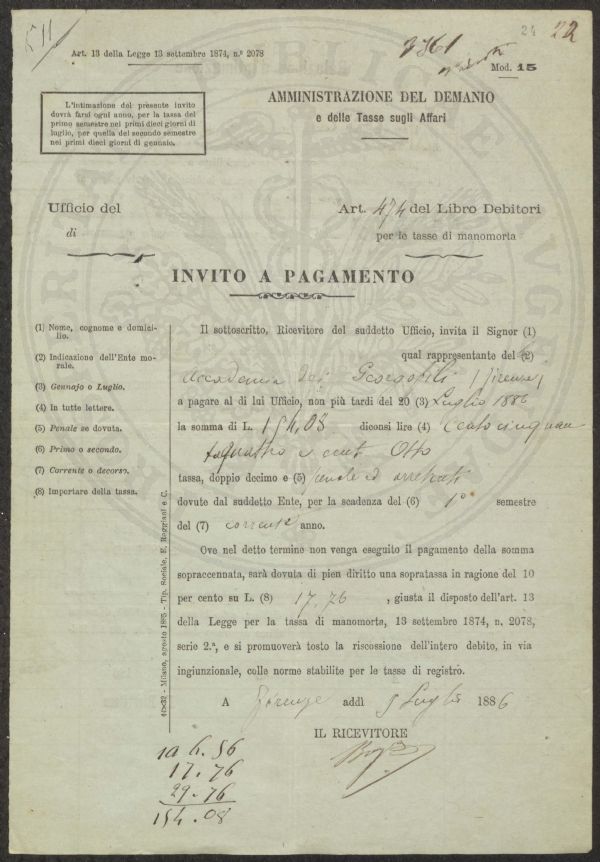 511
24 22
Art. 13 della Legge 13 settembre 1874, n.º 2078
Mod. 15
L'intimazione del presente invito
dovrà farsi ogni anno, per la tassa del
primo semestre nei primi dieci giorni di
luglio, per quella del secondo semestre
nei primi dieci giorni di gennaio.
AMMINISTRAZIONE DEL DEMANIO
e delle Tasse sugli Affari
Ufficio del
di
Art. 474 del Libro Debitori
per le tasse di manomorta
INVITO A PAGAMENTO
(1) Nome, cognome e domici-
lio.
(2) Indicazione dell'Ente mo-
rale.
(3) Gennajo o Luglio.
(4) In tutte lettere.
(5) Penale se dovuta.
(6) Primo o secondo.
(7) Corrente o decorso.
(8) Importare della tassa.
40x32 - Milano, agosto 1885 - Tip. Sociale, E. Reggiani e C.
Il sottoscritto, Ricevitore del suddetto Ufficio, invita il Signor (1)
qual rappresentante del (2)
Accademia dei Georgofili (Firenze)
a pagare al di lui Ufficio, non più tardi del 20 (3) Luglio 1886
la somma di L. 154,08 diconsi lire (4) Cento cinquan
taquattro e cent Otto
tassa, doppio decimo e (5) penale ed arretrati
dovute dal suddetto Ente, per la scadenza del (6) 1º semestre
del (7) corrente anno.
Ove nel detto termine non venga eseguito il pagamento della somma
sopraccennata, sarà dovuta di pien diritto una sopratassa in ragione del 10
per cento su L. (8) 17.76, giusta il disposto dell'art. 13
della Legge per la tassa di manomorta, 13 settembre 1874, n. 2078,
serie 2.ª, e si promuoverà tosto la riscossione dell'intero debito, in via
ingiunzionale, colle norme stabilite per le tasse di registro.
A Firenze addì 5 Luglio 1886
IL RICEVITORE
106.56
17.76
29.76
154.08